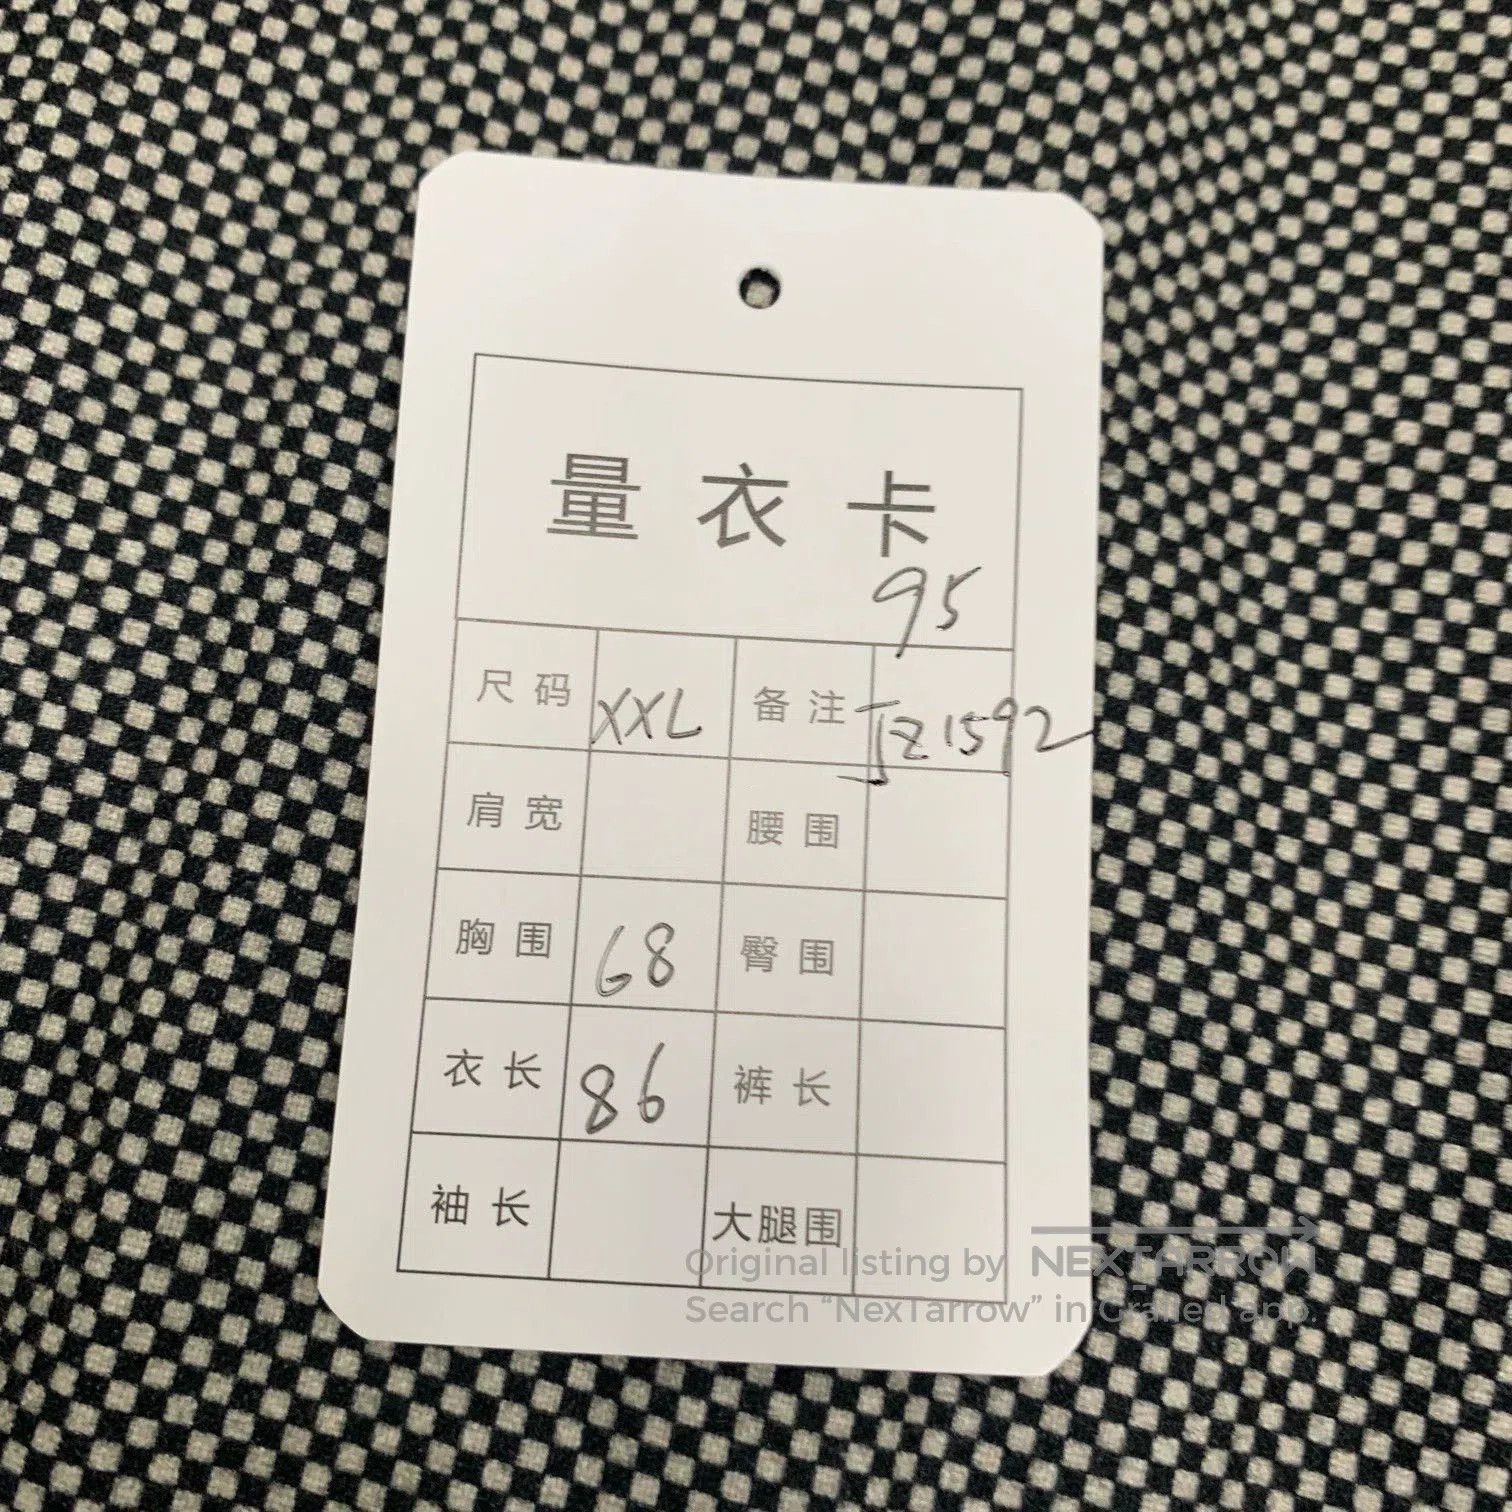 量衣卡
95
尺码 XXL 备注 JZ1592
肩宽 腰围
胸围 68 臀围
衣长 86 裤长
袖长 大腿围
Original listing by NEXTARROW
Search “NexTarrow” in Grailed app.